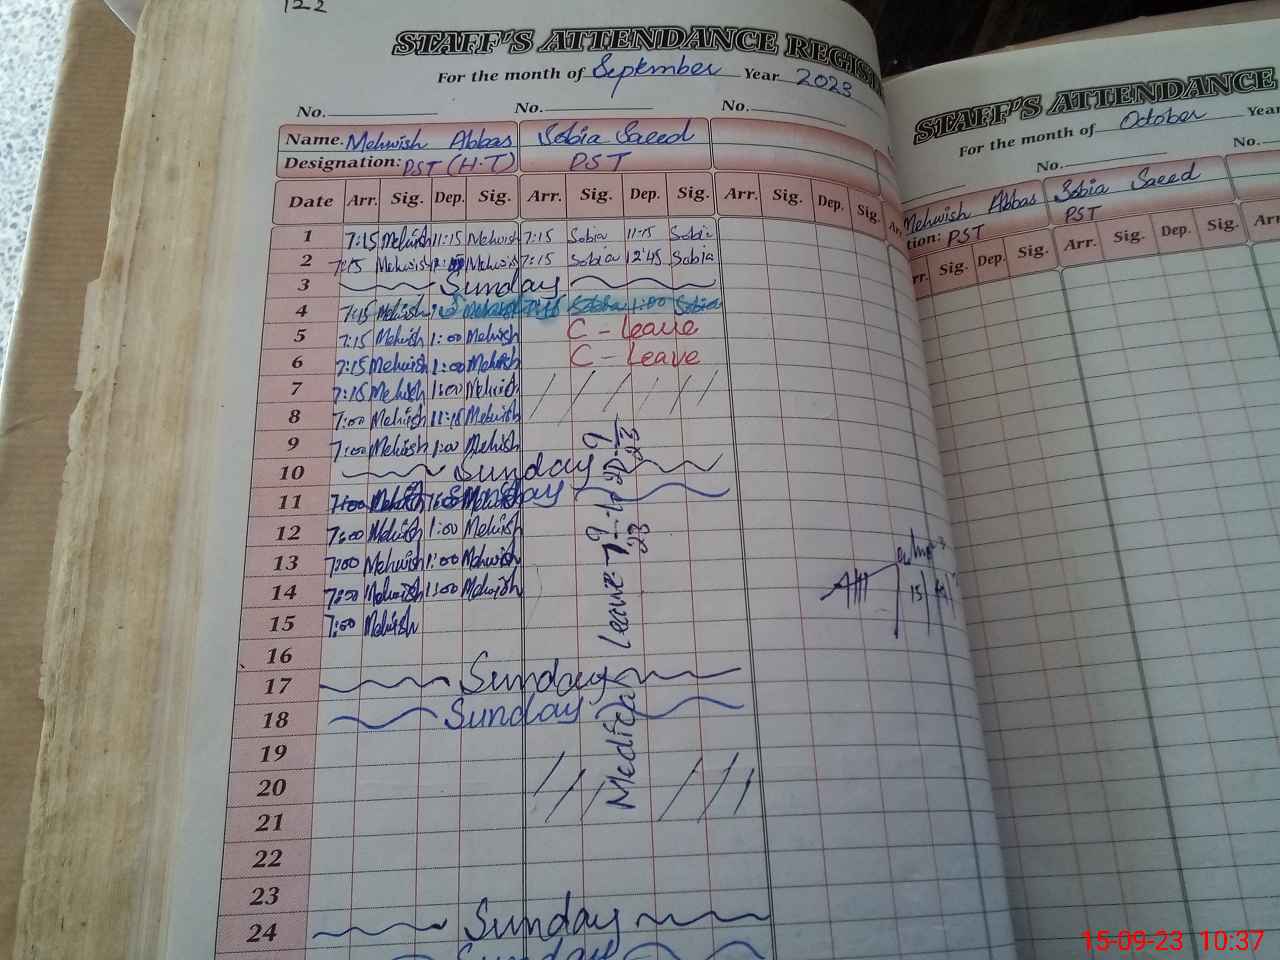 122
STAFF'S ATTENDANCE REGIS
For the month of September Year 2023
No. No. No.
Name. Mehwish Abbas Sobia Saeed
Designation: PST (H.T) PST
Date Arr. Sig. Dep. Sig. Arr. Sig. Dep. Sig. Arr. Sig. Dep. Sig. Arr.
1 7:15 Mehwish 11:15 Mehwish 7:15 Sobia 11:15 Sobia
2 7:15 Mehwish Mehwish 7:15 Sobia 12:45 Sobia
3 Sunday
4 7:15 Mehwish Mehwish 7:15 Sobia 1:00 Sobia
5 7:15 Mehwish 1:00 Mehwish C - Leave
6 7:15 Mehwish 1:00 Mehwish C - Leave
7 7:15 Mehwish 1:00 Mehwish
8 7:00 Mehwish 11:15 Mehwish
9 7:00 Mehwish 1:00 Mehwish
10 Sunday
11 7:00 Mehwish Mehwish Sunday
12 7:00 Mehwish 1:00 Mehwish
13 7:00 Mehwish 1:00 Mehwish
14 7:00 Mehwish 1:00 Mehwish
15 7:00 Mehwish
16
17 Sunday
18 Sunday
19
20
21
22
23
24 Sunday
Sunday
Medical Leave 7-9-23 to 20-9-23
15
STAFF'S ATTENDANCE
For the month of October Year
No. No.
Mehwish Abbas Sobia Saeed
tion: PST PST
rr. Sig. Dep. Sig. Arr. Sig. Dep. Sig. Arr
15-09-23 10:37